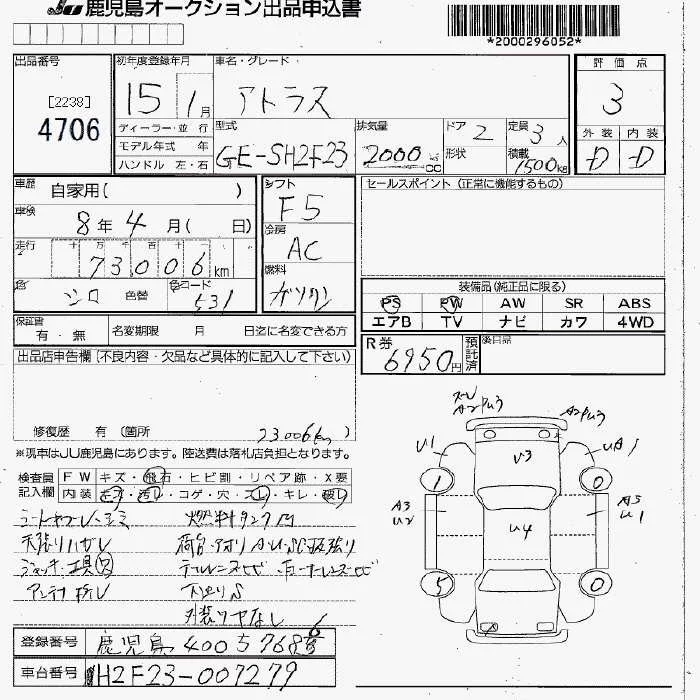 JU 鹿児島オークション出品申込書
*2000296052*
出品番号
[2238]
4706
初年度登録年月
15 1月
車名・グレード
アトラス
評価点
3
ディーラー・並 行
モデル年式 年
ハンドル 左・右
型式
GE-SH2F23
排気量
2000 cc
ドア 2
形状
定員 3人
積載 1500kg
外装 内装
D D
車歴 自家用( )
車検
8年 4月( 日)
走行 十 万 千 百 十
73006km
色 シロ 色替
色コード 531
シフト
F5
冷房
AC
燃料
ガソリン
セールスポイント (正常に機能するもの)
装備品(純正品に限る)
PS PW AW SR ABS
エアB TV ナビ カワ 4WD
保証書
有・無
名変期限 月 日迄に名変できる方
R券
6950円
預託済
後日品
出品店申告欄(不良内容・欠品など具体的に記入して下さい)
修復歴 有 (箇所 )
73006km
※現車はJU鹿児島にあります。陸送費は落札店負担となります。
検査員記入欄
FW キズ・飛石・ヒビ割・リペア跡・X要
内装 キズ・汚レ・コゲ・穴・スレ・キレ・破レ
シートヤブレ・シミ
燃料タンク凹
天張りハガレ
ジャッキ・工具欠
アンテナ折レ
下廻りS
A2PW3
A2PW3
U1
U3
UA1
1
0
A3
U2
U4
A3
U1
5
0
登録番号 鹿児島 400
車台番号 SH2F23-007279